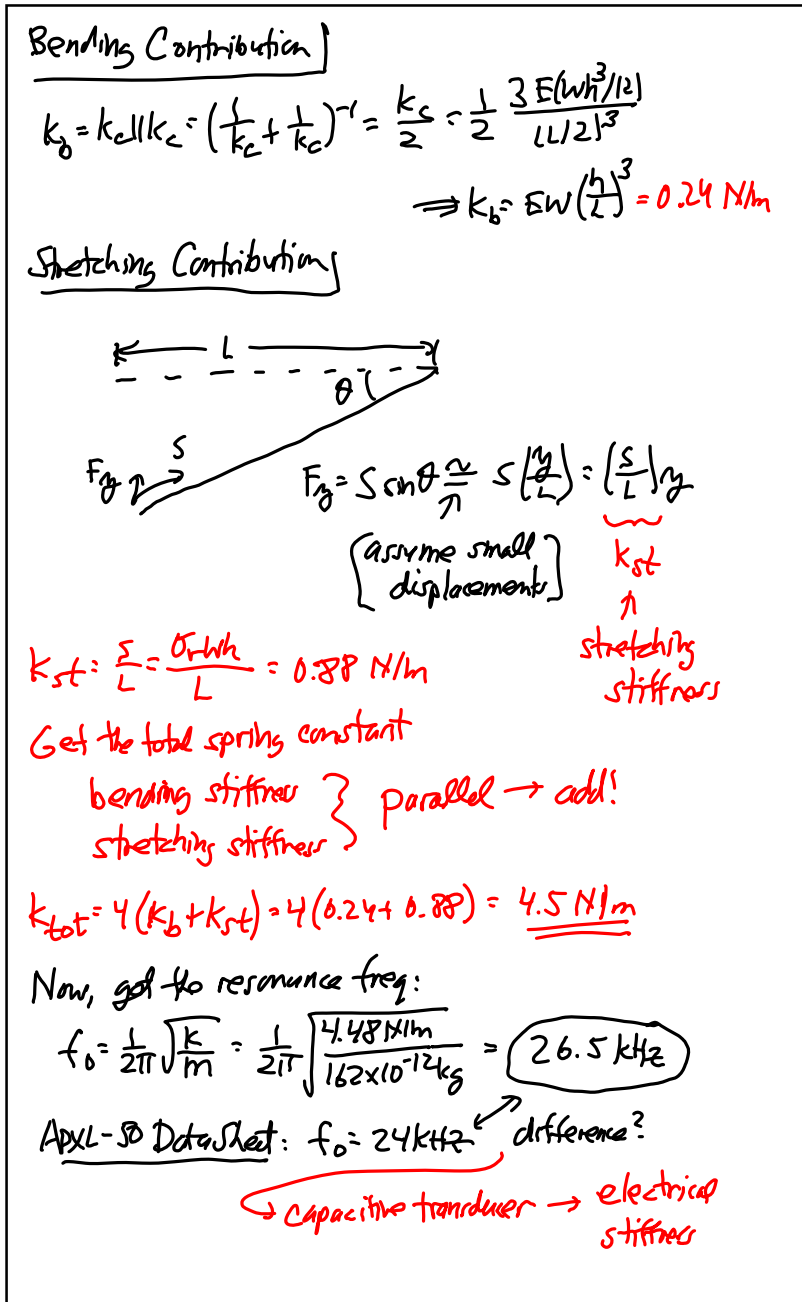 Bending Contribution
k_b = k_c||k_c = (1/k_c + 1/k_c)^-1 = k_c/2 = 1/2 3E(Wh^3/12)/(L/2)^3
⟹ k_b = EW(h/L)^3 = 0.24 N/m
Stretching Contribution
L
θ
S
F_y
F_y = S sinθ ≅ S(y/L) = (S/L)y
[assume small displacements]
k_st
↑
stretching
stiffness
k_st = S/L = σ_r Wh/L = 0.88 N/m
Get the total spring constant
bending stiffness
stretching stiffness
} parallel → add!
k_tot = 4(k_b + k_st) = 4(0.24 + 0.88) = 4.5 N/m
Now, get the resonance freq:
f_0 = 1/2π √(k/m) = 1/2π √(4.48 N/m / 162×10^-12 kg) = 26.5 kHz
ADXL-50 Data Sheet: f_0 = 24 kHz difference?
↳ capacitive transducer → electrical
stiffness